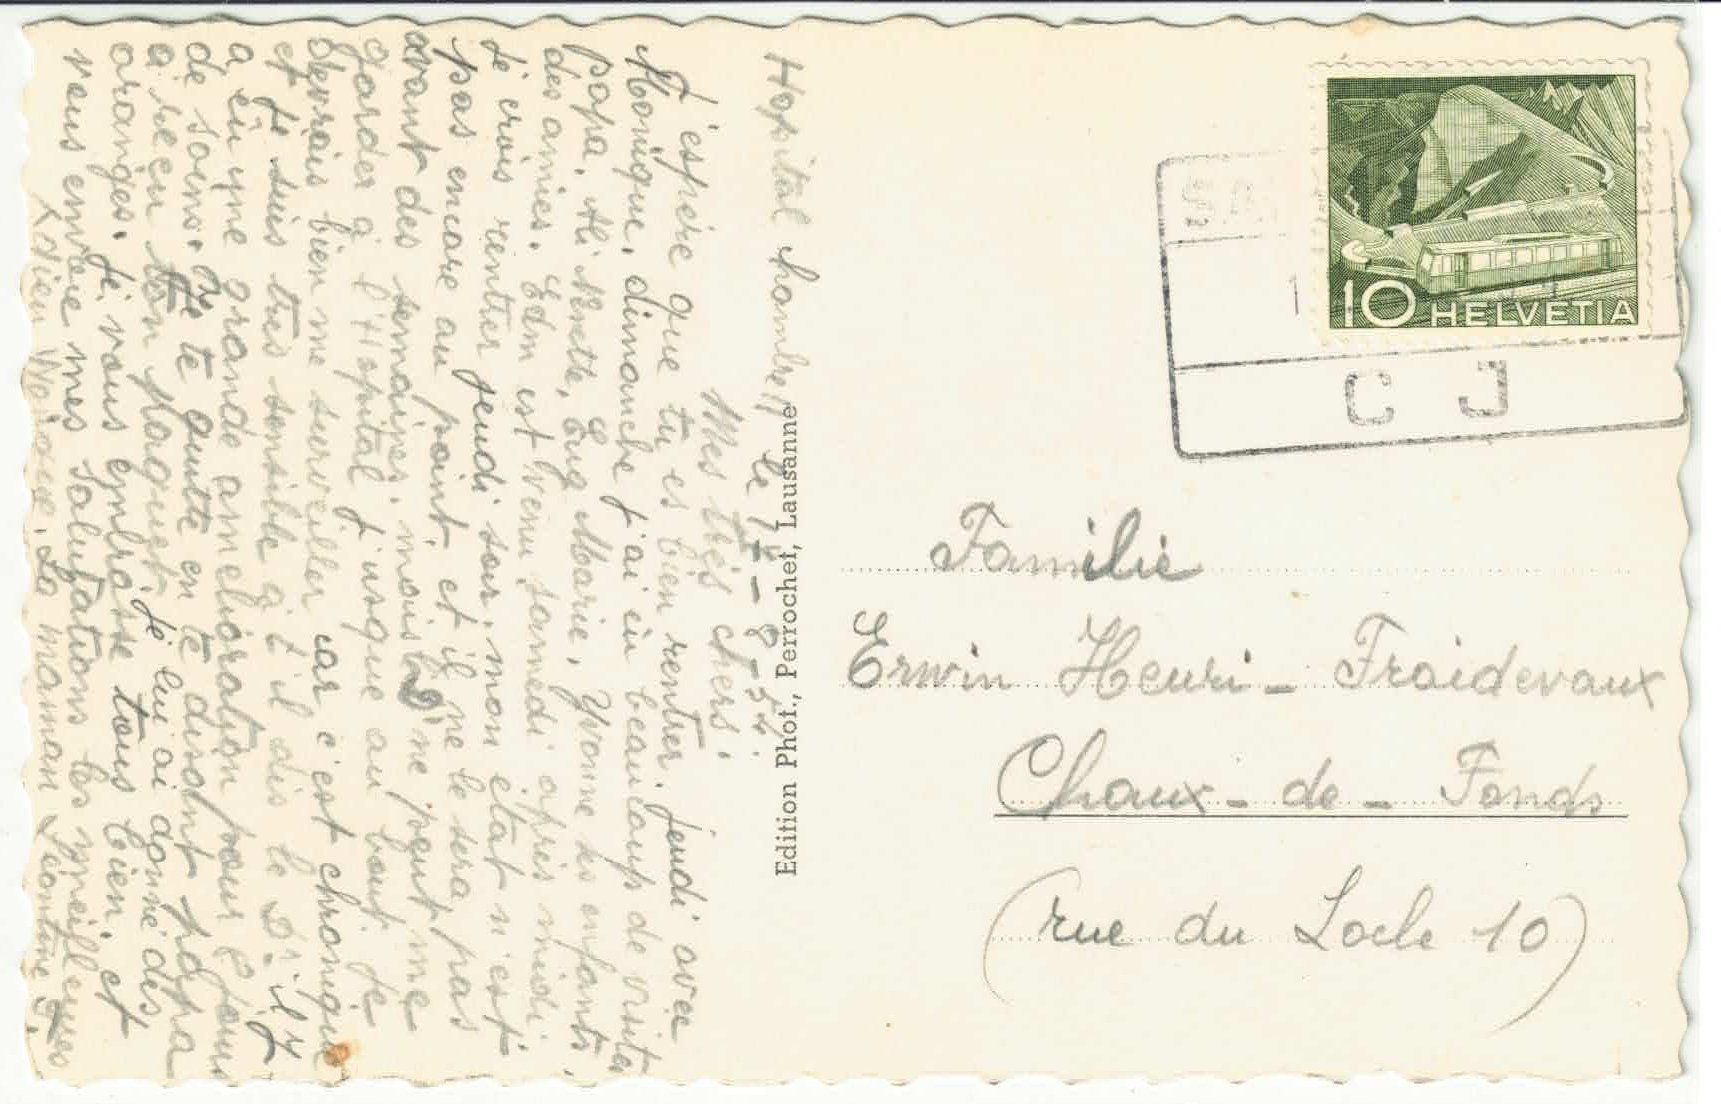 Hopital chambre 11 le 12-8-54.
Mes très chers.
J'espère que tu es bien rentrer. jeudi avec
Monique, dimanche j'ai eu beaucoup de visites
papa, Ali Ninette, Eug Marie, Yvonne les enfants,
des amies. Edm est venu samedi après midi.
Je crois rentrer jeudi soir, mon état n'est
pas encore au point et il ne le sera pas
avant des semaines, mais ne peut me
garder à l'Hopital jusque au bout. Je
devrais bien me surveiller car c'est chronique
et je suis très sensible à t'il dis le Dr. il y
a eu une grande amelioration pour 8 jours
de soins. Je te quitte en te disant papa
a reçu ton plaquet je lui ai donné des
oranges. Je vous embrasse tous bien et
vous envoie mes salutations les meilleures
Adieu Monique. La maman Léontine J.
Edition Phot., Perrochet, Lausanne
10 HELVETIA
C J
Familie
Erwin Henri - Froidevaux
Chaux - de - Fonds
(rue du Locle 10)